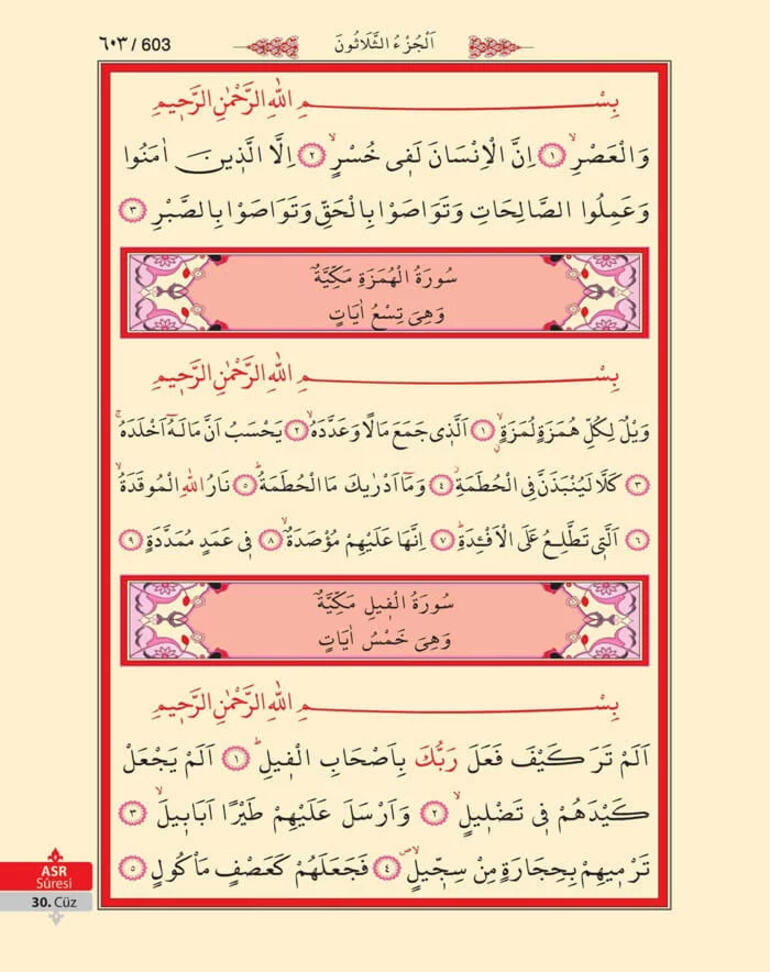 ٦٠٣ / 603
اَلْجُزْءُ الثَّلَاثُونَ
بِسْمِ اللّٰهِ الرَّحْمٰنِ الرَّحٖيمِ
وَالْعَصْرِۙ ١ اِنَّ الْاِنْسَانَ لَفٖي خُسْرٍۙ ٢ اِلَّا الَّذٖينَ اٰمَنُوا
وَعَمِلُوا الصَّالِحَاتِ وَتَوَاصَوْا بِالْحَقِّ وَتَوَاصَوْا بِالصَّبْرِ ٣
سُورَةُ الْهُمَزَةِ مَكِّيَّةٌ
وَهِيَ تِسْعُ اٰيَاتٍ
بِسْمِ اللّٰهِ الرَّحْمٰنِ الرَّحٖيمِ
وَيْلٌ لِكُلِّ هُمَزَةٍ لُمَزَةٍۙ ١ اَلَّذٖي جَمَعَ مَالًا وَعَدَّدَهُۙ ٢ يَحْسَبُ اَنَّ مَالَهُٓ اَخْلَدَهُۚ
٣ كَلَّا لَيُنْبَذَنَّ فِي الْحُطَمَةِۘ ٤ وَمَٓا اَدْرٰيكَ مَا الْحُطَمَةُۜ ٥ نَارُ اللّٰهِ الْمُوقَدَةُۙ
٦ اَلَّتٖي تَطَّلِعُ عَلَى الْاَفْـِٔدَةِۜ ٧ اِنَّهَا عَلَيْهِمْ مُؤْصَدَةٌۙ ٨ فٖي عَمَدٍ مُمَدَّدَةٍ ٩
سُورَةُ الْفٖيلِ مَكِّيَّةٌ
وَهِيَ خَمْسُ اٰيَاتٍ
بِسْمِ اللّٰهِ الرَّحْمٰنِ الرَّحٖيمِ
اَلَمْ تَرَ كَيْفَ فَعَلَ رَبُّكَ بِاَصْحَابِ الْفٖيلِۜ ١ اَلَمْ يَجْعَلْ
كَيْدَهُمْ فٖي تَضْلٖيلٍۙ ٢ وَاَرْسَلَ عَلَيْهِمْ طَيْرًا اَبَابٖيلَۙ ٣
تَرْمٖيهِمْ بِحِجَارَةٍ مِنْ سِجّٖيلٍۙۖ ٤ فَجَعَلَهُمْ كَعَصْفٍ مَأْكُولٍ ٥
ASR
Sûresi
30. Cüz